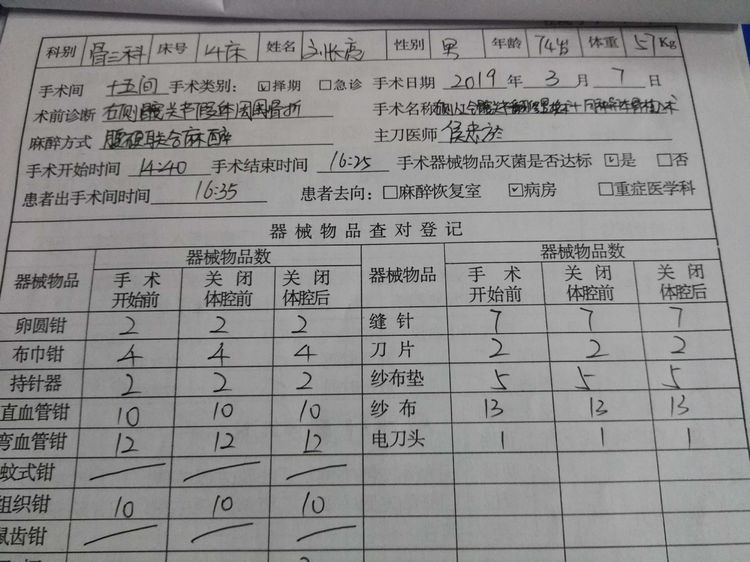 科别 骨三科 床号 14床 姓名 刘长 性别 男 年龄 74岁 体重 57Kg
手术间 十五间 手术类别: ☑择期 □急诊 手术日期 2019 年 3 月 7 日
术前诊断 右侧髋关节假体周围骨折 手术名称
麻醉方式 腰硬联合麻醉 主刀医师 侯
手术开始时间 14:40 手术结束时间 16:25 手术器械物品灭菌是否达标 ☑是 □否
患者出手术间时间 16:35 患者去向: □麻醉恢复室 ☑病房 □重症医学科
器械物品查对登记
器械物品 器械物品数 器械物品 器械物品数
手术开始前 关闭体腔前 关闭体腔后 手术开始前 关闭体腔前 关闭体腔后
卵圆钳 2 2 2 缝针 7 7 7
布巾钳 4 4 4 刀片 2 2 2
持针器 2 2 2 纱布垫 5 5 5
直血管钳 10 10 10 纱布 13 13 13
弯血管钳 12 12 12 电刀头 1 1 1
蚊式钳
组织钳 10 10 10
鼠齿钳